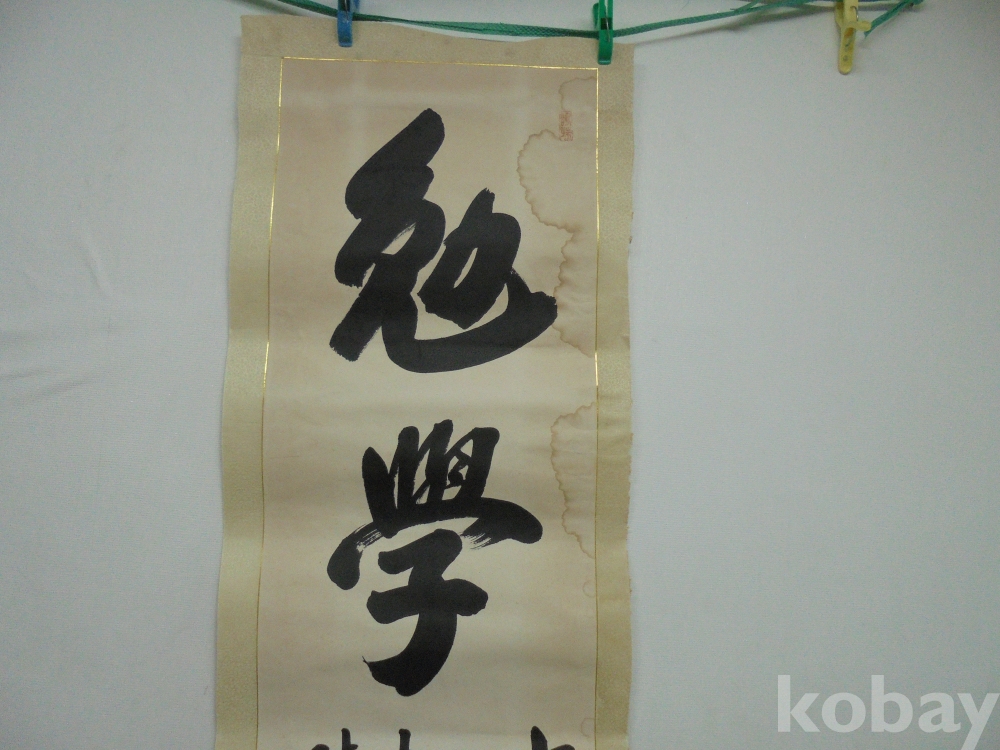 勉
學
kobay